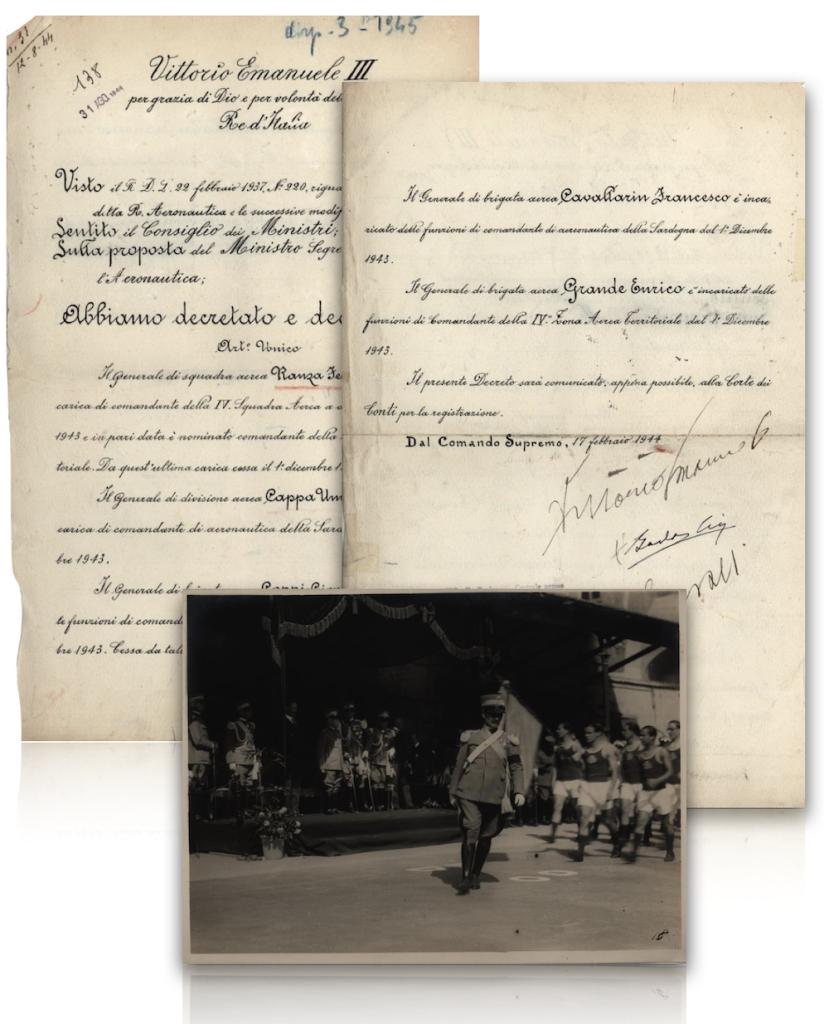 n. 31
12-8-44
disp. 3 1945
138
31 AGO 1944
Vittorio Emanuele III
per grazia di Dio e per volontà del
Re d'Italia
Visto il R. D. L. 22 febbraio 1937, Nº 220, rigua
della R. Aeronautica e le successive modif
Sentito il Consiglio dei Ministri;
Sulla proposta del Ministro Segre
l'Aeronautica;
Abbiamo decretato e de
Artº Unico
Il Generale di squadra aerea Ranza Fe
carica di comandante della IV. Squadra Aerea a
1943 e in pari data è nominato comandante della
toriale. Da quest'ultima carica cessa il 1º dicembre 1
Il Generale di divisione aerea Cappa Um
carica di comandante di aeronautica della Sard
bre 1943.
Il Generale di
te funzioni di comand
bre 1943. Cessa da tal
Il Generale di brigata aerea Cavallarin Francesco è inca,
ricato delle funzioni di comandante di aeronautica della Sardegna dal 1º Dicembre
1943.
Il Generale di brigata aerea Grande Enrico è incaricato delle
funzioni di Comandante della IVª Zona Aerea Territoriale dal 1º Dicembre
1943.
Il presente Decreto sarà comunicato, appena possibile, alla Corte dei
Conti per la registrazione.
Dal Comando Supremo, 17 febbraio 1944
Vittorio Emanuele